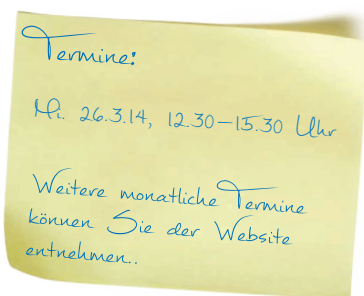 Termine:
Mi. 26.3.14, 12.30–15.30 Uhr
Weitere monatliche Termine
können Sie der Website
entnehmen..